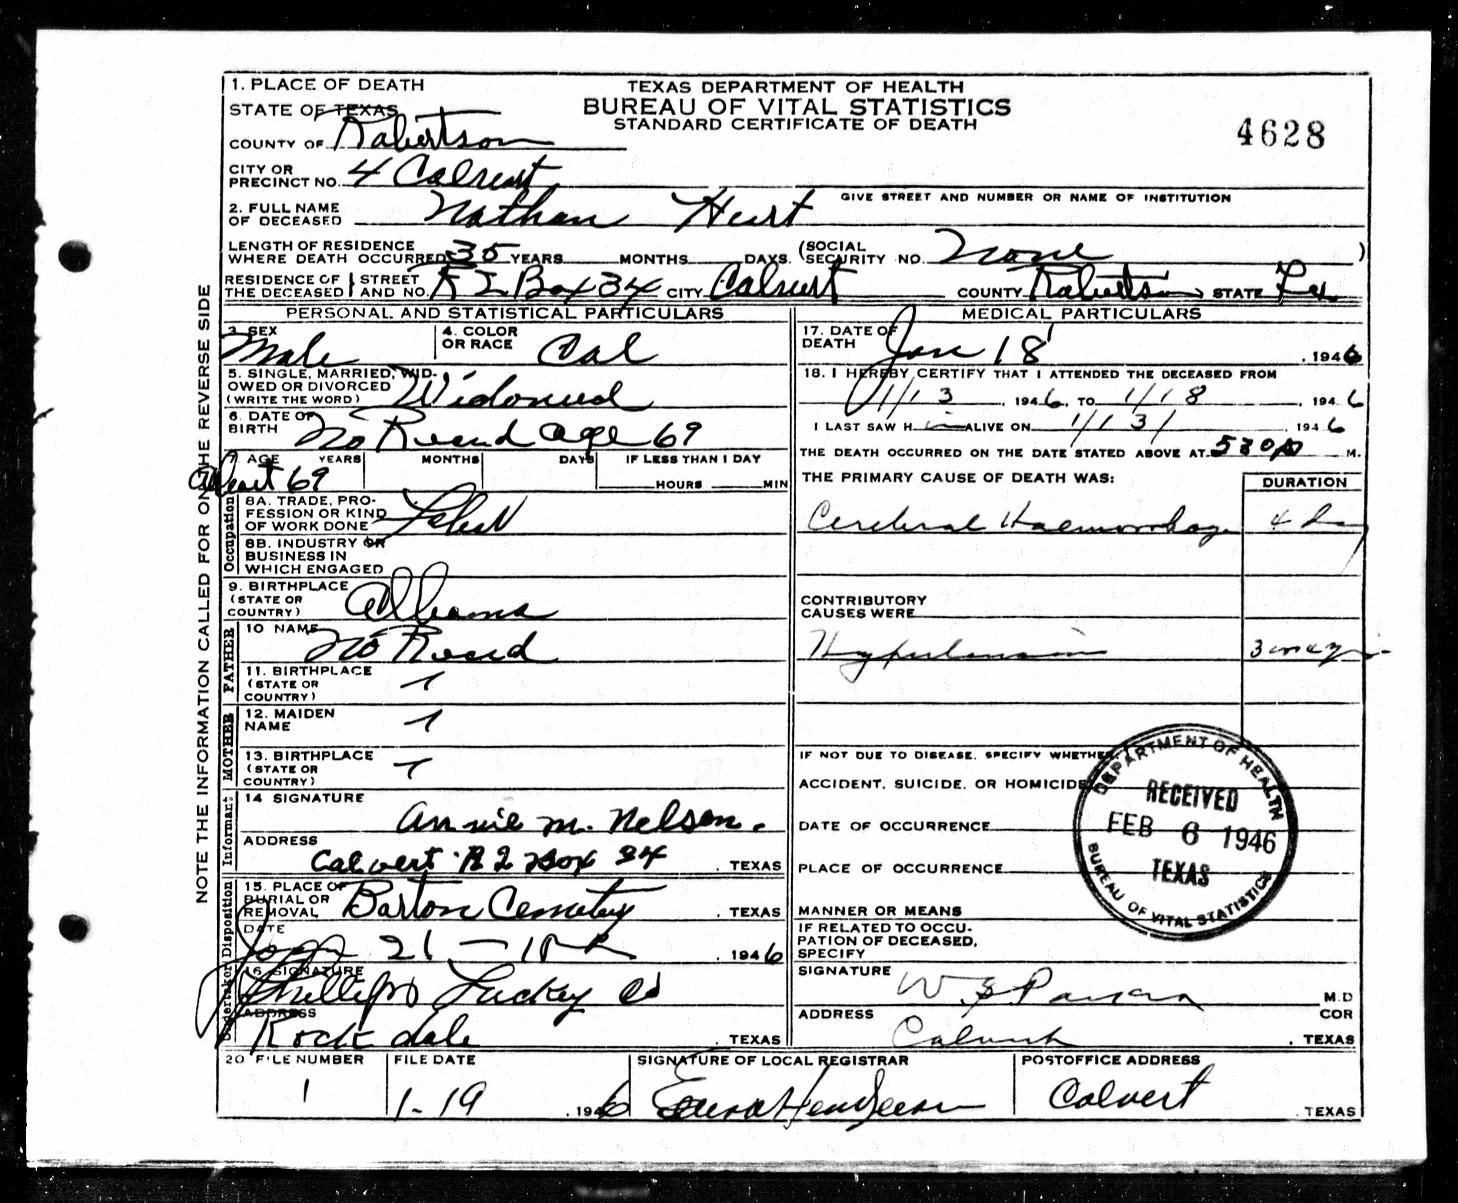 TEXAS DEPARTMENT OF HEALTH
BUREAU OF VITAL STATISTICS
STANDARD CERTIFICATE OF DEATH
4628
NOTE THE INFORMATION CALLED FOR ON THE REVERSE SIDE
1. PLACE OF DEATH
STATE OF TEXAS
COUNTY OF Robertson
CITY OR PRECINCT NO. 4 Calvert
GIVE STREET AND NUMBER OR NAME OF INSTITUTION
2. FULL NAME OF DECEASED Nathan Hurt
LENGTH OF RESIDENCE WHERE DEATH OCCURRED 35 YEARS MONTHS DAYS. (SOCIAL SECURITY NO. None )
RESIDENCE OF THE DECEASED STREET AND NO. R 2 Box 34 CITY Calvert COUNTY Robertson STATE Tex
PERSONAL AND STATISTICAL PARTICULARS
3. SEX Male
4. COLOR OR RACE Col
5. SINGLE, MARRIED, WIDOWED OR DIVORCED (WRITE THE WORD) Widowed
6. DATE OF BIRTH No Record age 69
7. AGE YEARS MONTHS DAYS IF LESS THAN 1 DAY
About 69 HOURS MIN
Occupation
8A. TRADE, PROFESSION OR KIND OF WORK DONE
8B. INDUSTRY OR BUSINESS IN WHICH ENGAGED
9. BIRTHPLACE (STATE OR COUNTRY) Albama
FATHER
10 NAME No Record
11. BIRTHPLACE (STATE OR COUNTRY)
MOTHER
12. MAIDEN NAME
13. BIRTHPLACE (STATE OR COUNTRY)
Informant
14 SIGNATURE Annie M. Nelson.
ADDRESS Calvert R 2 Box 34 . TEXAS
Undertaker Disposition
15. PLACE OF BURIAL OR REMOVAL Barton Cemetery . TEXAS
DATE Jan 21 . 1946
16 SIGNATURE Phillips Luckey Co
ADDRESS Rockdale . TEXAS
MEDICAL PARTICULARS
17. DATE OF DEATH Jan 18 , 1946
18. I HEREBY CERTIFY THAT I ATTENDED THE DECEASED FROM
1/13 , 1946, TO 1/18 , 1946
I LAST SAW H im ALIVE ON 1/13/ 1946
THE DEATH OCCURRED ON THE DATE STATED ABOVE AT 530 P M.
THE PRIMARY CAUSE OF DEATH WAS: DURATION
Cerebral Haemorrhage 4 Day
CONTRIBUTORY CAUSES WERE
Hypertension 3
IF NOT DUE TO DISEASE, SPECIFY WHETHER
ACCIDENT, SUICIDE, OR HOMICIDE
DATE OF OCCURRENCE
PLACE OF OCCURRENCE
MANNER OR MEANS
IF RELATED TO OCCUPATION OF DECEASED, SPECIFY
SIGNATURE W. S. Parsons M.D
ADDRESS Calvert COR . TEXAS
DEPARTMENT OF HEALTH
RECEIVED
FEB 6 1946
TEXAS
BUREAU OF VITAL STATISTICS
20 FILE NUMBER 1
FILE DATE 1-19 , 1946
SIGNATURE OF LOCAL REGISTRAR Henderson
POSTOFFICE ADDRESS Calvert . TEXAS